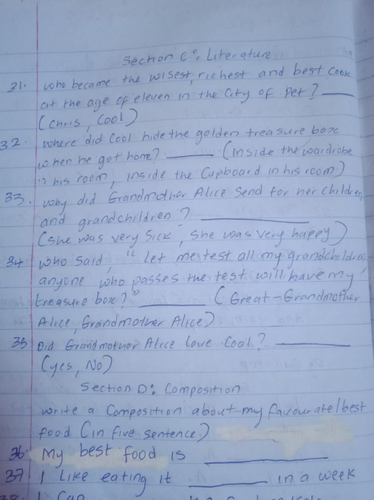 Section C: Literature
31. who became the wisest, richest and best cook
at the age of eleven in the City of Pet? ____
(Chris, Cool)
32. where did Cool hide the golden treasure box
when he got home? ____ (Inside the wardrobe
in his room, inside the Cupboard in his room)
33. why did Grandmother Alice Send for her children
and grandchildren? ____
(She was very Sick, She was very happy)
34. who said, "let me test all my grandchildren
anyone who passes the test will have my
treasure box?" ____ (Great-Grandmother
Alice, Grandmother Alice)
35. Did Grandmother Alice Love Cool? ____
(yes, No)
Section D: Composition
write a Composition about my favourate/best
food (in five sentence)
36. My best food is ____
37. I Like eating it ____ in a week